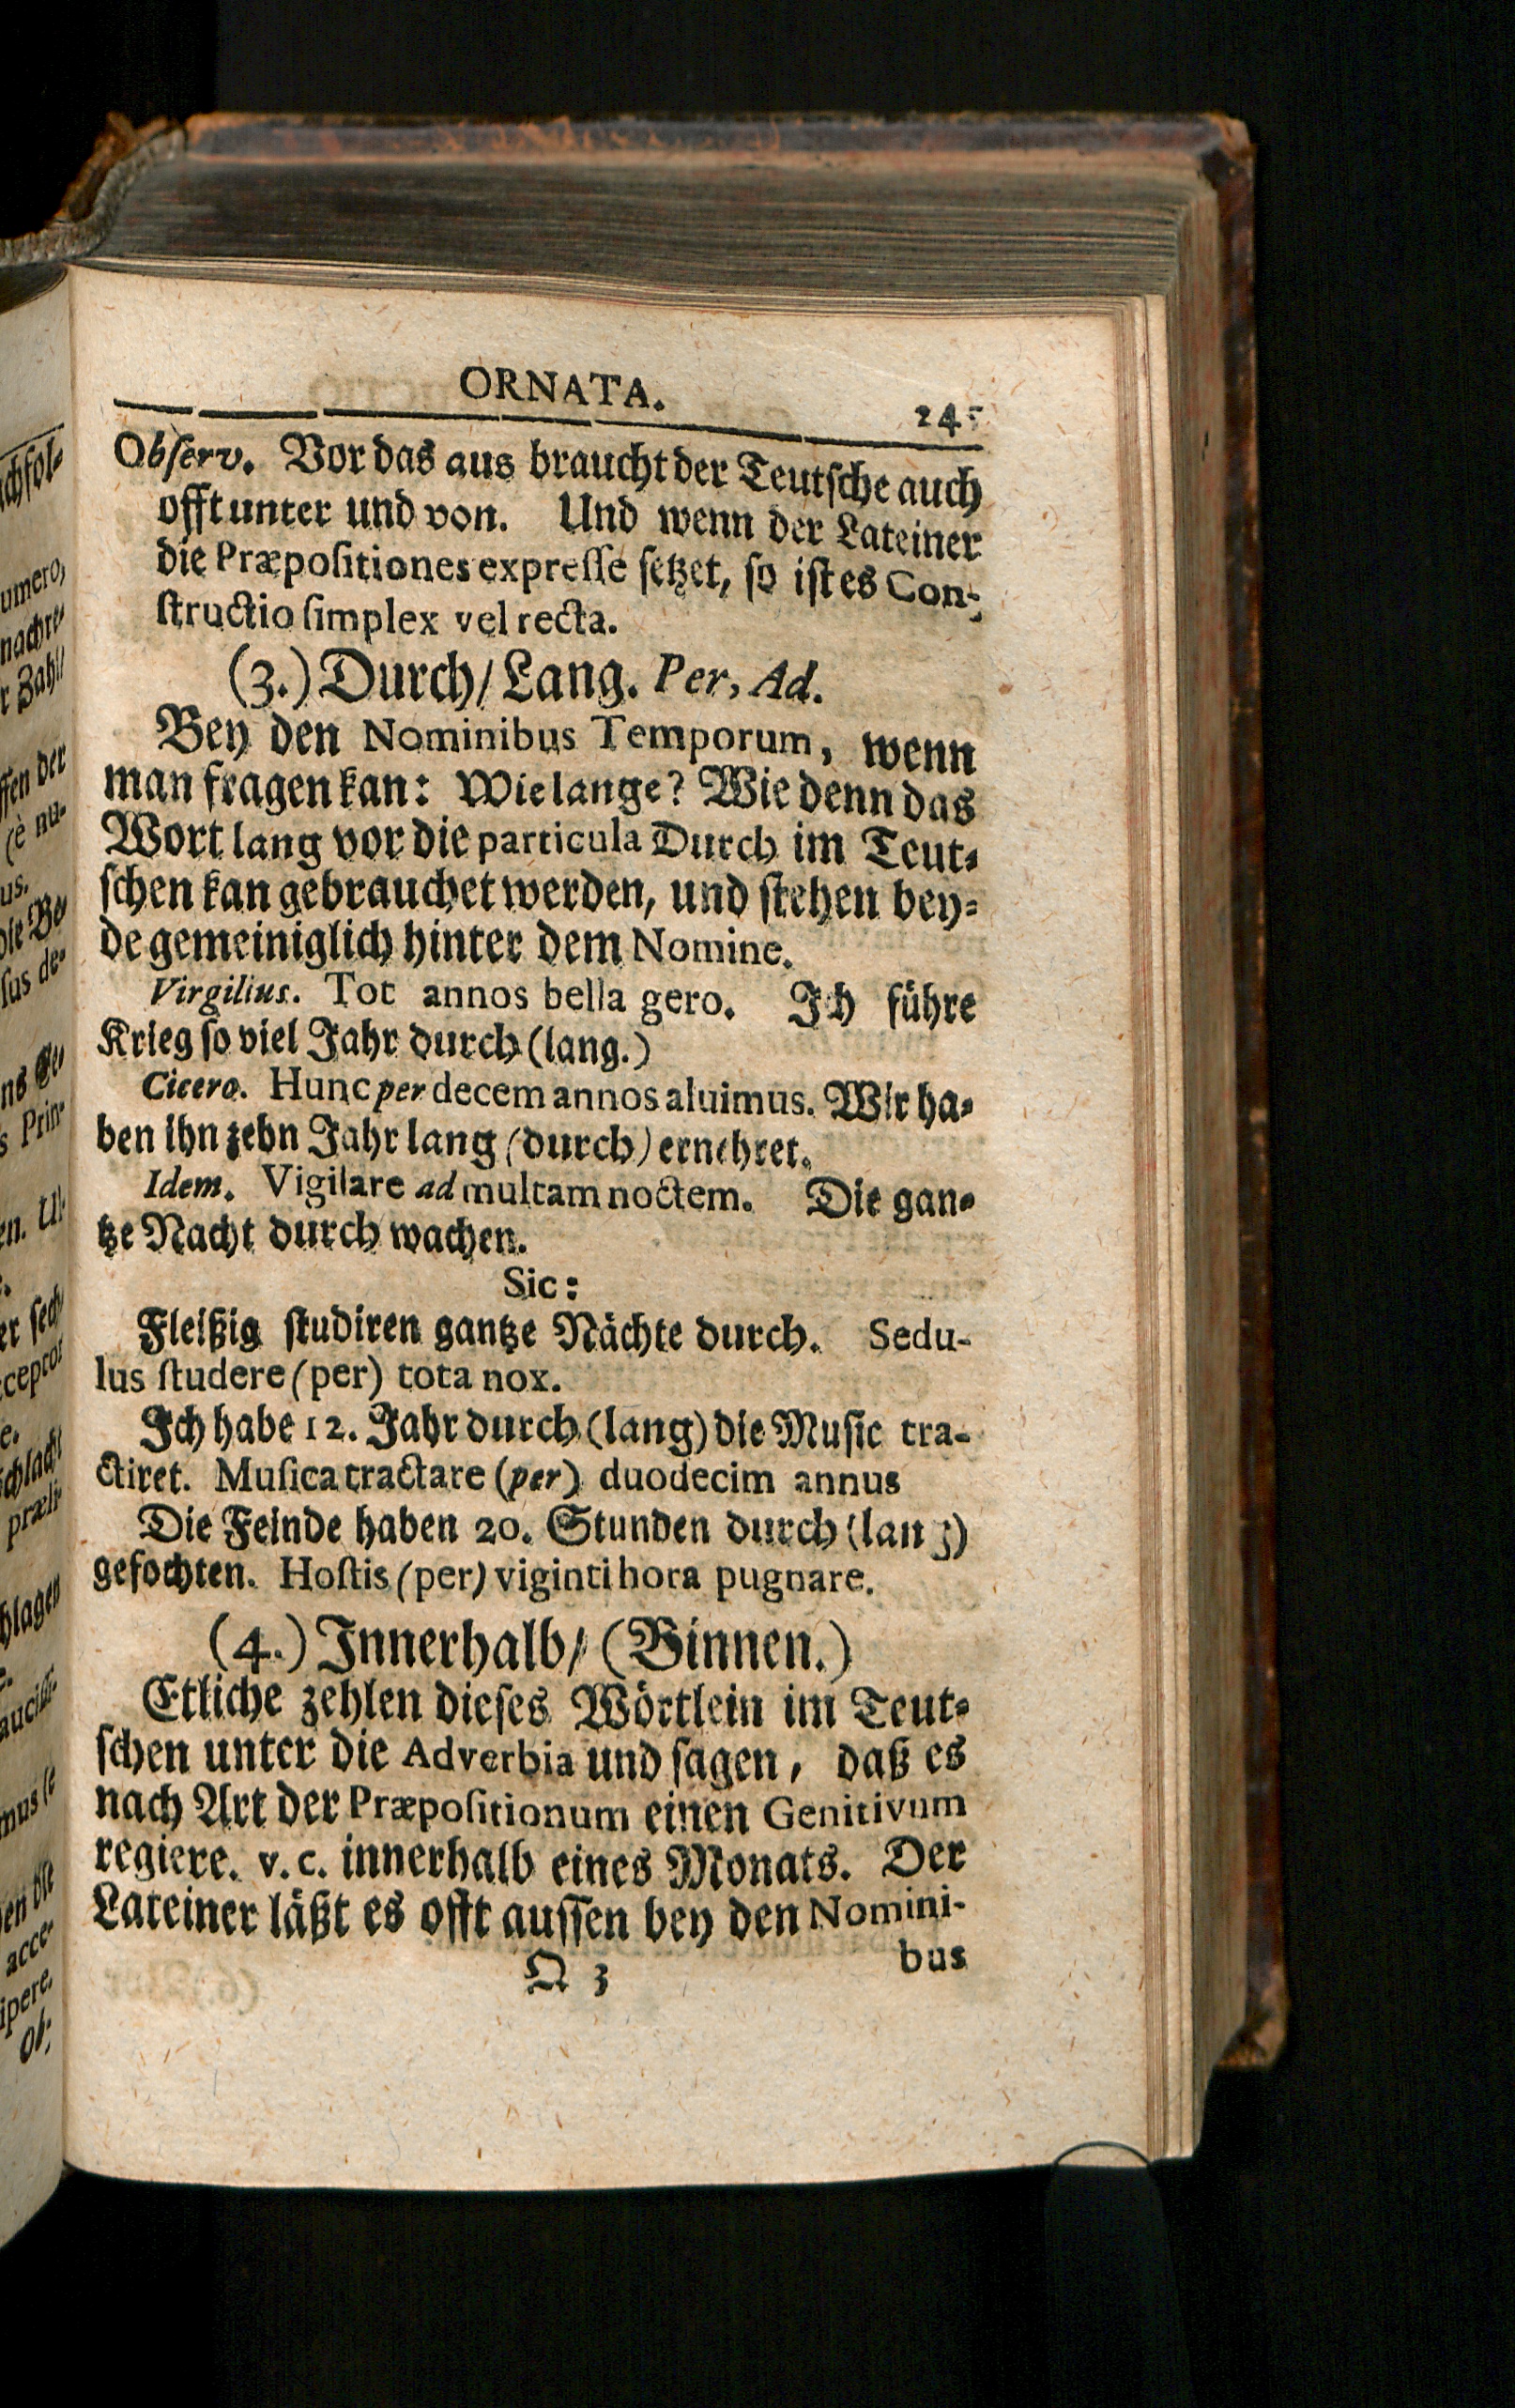 ORNATA.
24
Observ. Vor das aus braucht der Teutsche auch
offt unter und von. Und wenn der Lateiner
die Præpositiones expresse setzet, so ist es Con-
structio simplex vel recta.
(3.) Durch/ Lang. Per, Ad.
Bey den Nominibus Temporum, wenn
man fragen kan: Wie lange? Wie denn das
Wort lang vor die particula Durch im Teut-
schen kan gebrauchet werden, und stehen bey-
de gemeiniglich hinter dem Nomine.
Virgilius. Tot annos bella gero. Ich führe
Krieg so viel Jahr durch (lang.)
Cicero. Hunc per decem annos aluimus. Wir ha-
ben ihn zehn Jahr lang (durch) ernehret.
Idem. Vigilare ad multam noctem. Die gan-
tze Nacht durch wachen.
Sic:
Fleißig studiren gantze Nächte durch. Sedu-
lus studere (per) tota nox.
Ich habe 12. Jahr durch (lang) die Music tra-
ctiret. Musica tractare (per) duodecim annus
Die Feinde haben 20. Stunden durch (lang)
gefochten. Hostis (per) viginti hora pugnare.
(4.) Innerhalb/ (Binnen.)
Etliche zehlen dieses Wörtlein im Teut-
schen unter die Adverbia und sagen, daß es
nach Art der Præpositionum einen Genitivum
regiere. v.c. innerhalb eines Monats. Der
Lateiner läßt es offt aussen bey den Nomini-
Q 3
bus